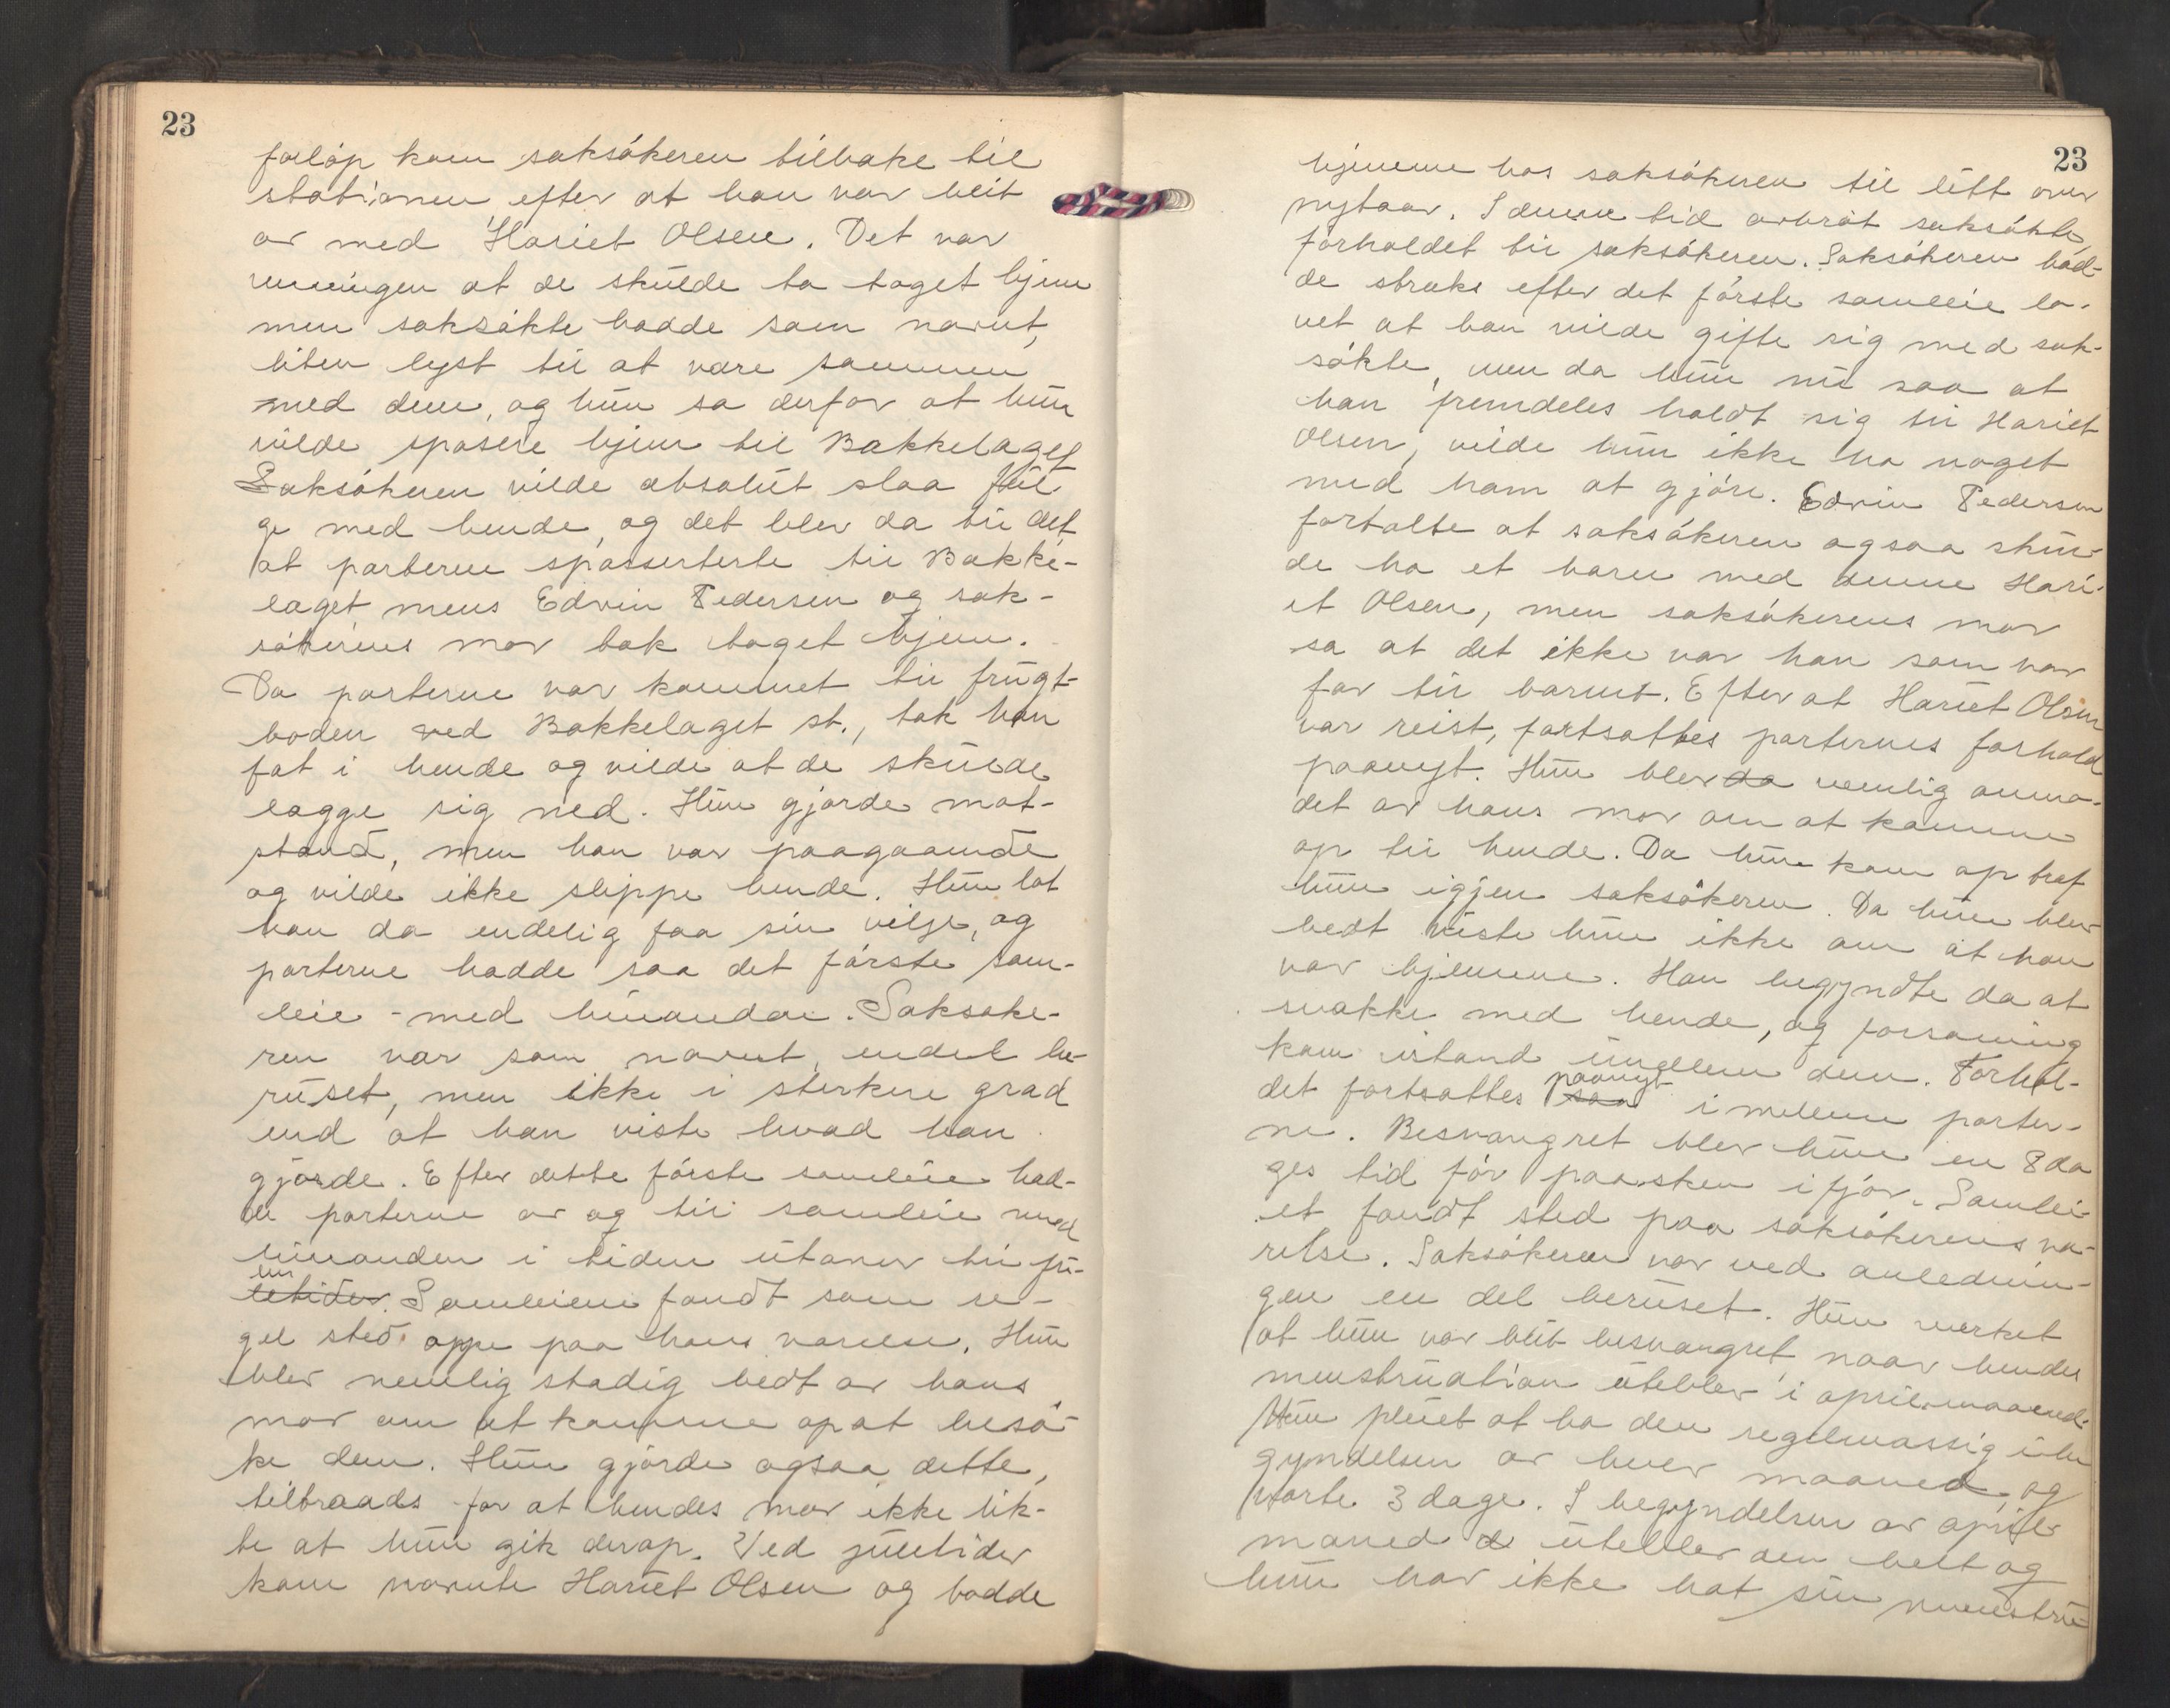 23
forløp kom saksøkeren tilbake til
stationen efter at han var blit
av med Hariet Olsen. Det var
meningen at de skulde ta toget hjem
men saksøkte hadde som nævnt,
liten lyst til at være sammen
med dem, og hun sa derfor at hun
vilde spasere hjem til Bækkelaget
Saksøkeren vilde absolut slaa føl
ge med hende, og det blev da til det
at parterne spasserterte til Bække-
laget mens Edvin Pedersen og sak-
søkerens mor tok toget hjem.
Da parterne var kommet til frugt-
boden ved Bækkelaget st., tok han
fat i hende og vilde at de skulde
lægge sig ned. Hun gjorde mot-
stand, men han var paagaaende
og vilde ikke slippe hende. Hun lot
han da endelig faa sin vilje, og
parterne hadde saa det første sam-
leie - med hinanden. Saksøke-
ren var som nævnt, endel be-
ruset, men ikke i sterkere grad
end at han viste hvad han
gjorde. Efter dette første samleie had-
de parterne av og til samleie med
hinanden i tiden utover til ju-
len letider. Samleiene fandt som re-
gel sted oppe paa hans værelse. Hun
blev nemlig stadig bedt av hans
mor om at komme op at besø-
ke dem. Hun gjorde ogsaa dette,
tiltraads for at hendes mor ikke lik-
te at hun gik derop. Ved juletider
kom nævnte Hariet Olsen og bodde
23
hjemme hos saksøkeren til litt over
nytaar. I denne tid avbrøt saksøkte
forholdet til saksøkeren. Saksøkeren had-
de straks efter det første samleie lo-
vet at han vilde gifte sig med sak-
søkte, men da hun nu saa at
han fremdeles holdt sig til Hariet
Olsen, vilde hun ikke ha noget
med ham at gjøre. Edvin Pedersen
fortalte at saksøkeren ogsaa skul-
de ha et barn med denne Hari-
et Olsen, men saksøkerens mor
sa at det ikke var han som var
far til barnet. Efter at Hariet Olsen
var reist, fortsattes parternes forhold
paanyt. Hun blev da nemlig anmo-
det av hans mor om at komme
op til hende. Da hun kom op traf
hun igjen saksøkeren. Da hun blev
bedt viste hun ikke om at han
var hjemme. Han begyndte da at
snakke med hende, og forsoning
kom istand imellem dem. Forhol-
det fortsattes saa paanyt imellem parter-
ne. Besvangret blev hun en 8 da
ges tid før paasken ifjor. Samlei-
et fandt sted paa saksøkerens væ-
relse. Saksøkeren var ved anlednin-
gen en del beruset. Hun merket
at hun var blit besvangret naar hendes
menstruation uteblev i april maaned.
Hun pleiet at ha den regelmæssig i be
gyndelsen av hver maaned, og
varte 3 dage. I begyndelsen av april
maned de uteblev den helt og
hun har ikke hat sin menstru-